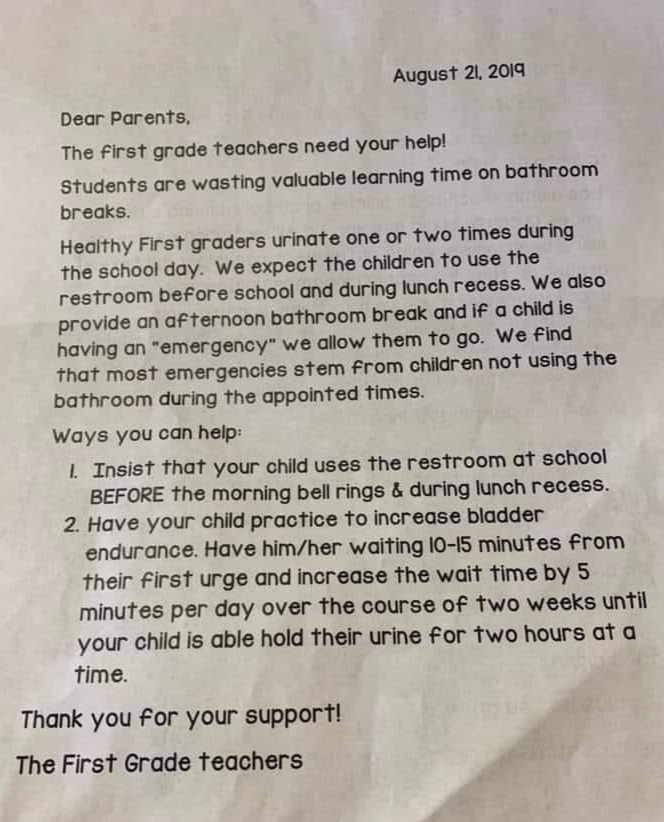 August 21, 2019
Dear Parents,
The first grade teachers need your help!
Students are wasting valuable learning time on bathroom
breaks.
Healthy First graders urinate one or two times during
the school day. We expect the children to use the
restroom before school and during lunch recess. We also
provide an afternoon bathroom break and if a child is
having an "emergency" we allow them to go. We find
that most emergencies stem from children not using the
bathroom during the appointed times.
Ways you can help:
1. Insist that your child uses the restroom at school
BEFORE the morning bell rings & during lunch recess.
2. Have your child practice to increase bladder
endurance. Have him/her waiting 10-15 minutes from
their first urge and increase the wait time by 5
minutes per day over the course of two weeks until
your child is able hold their urine for two hours at a
time.
Thank you for your support!
The First Grade teachers